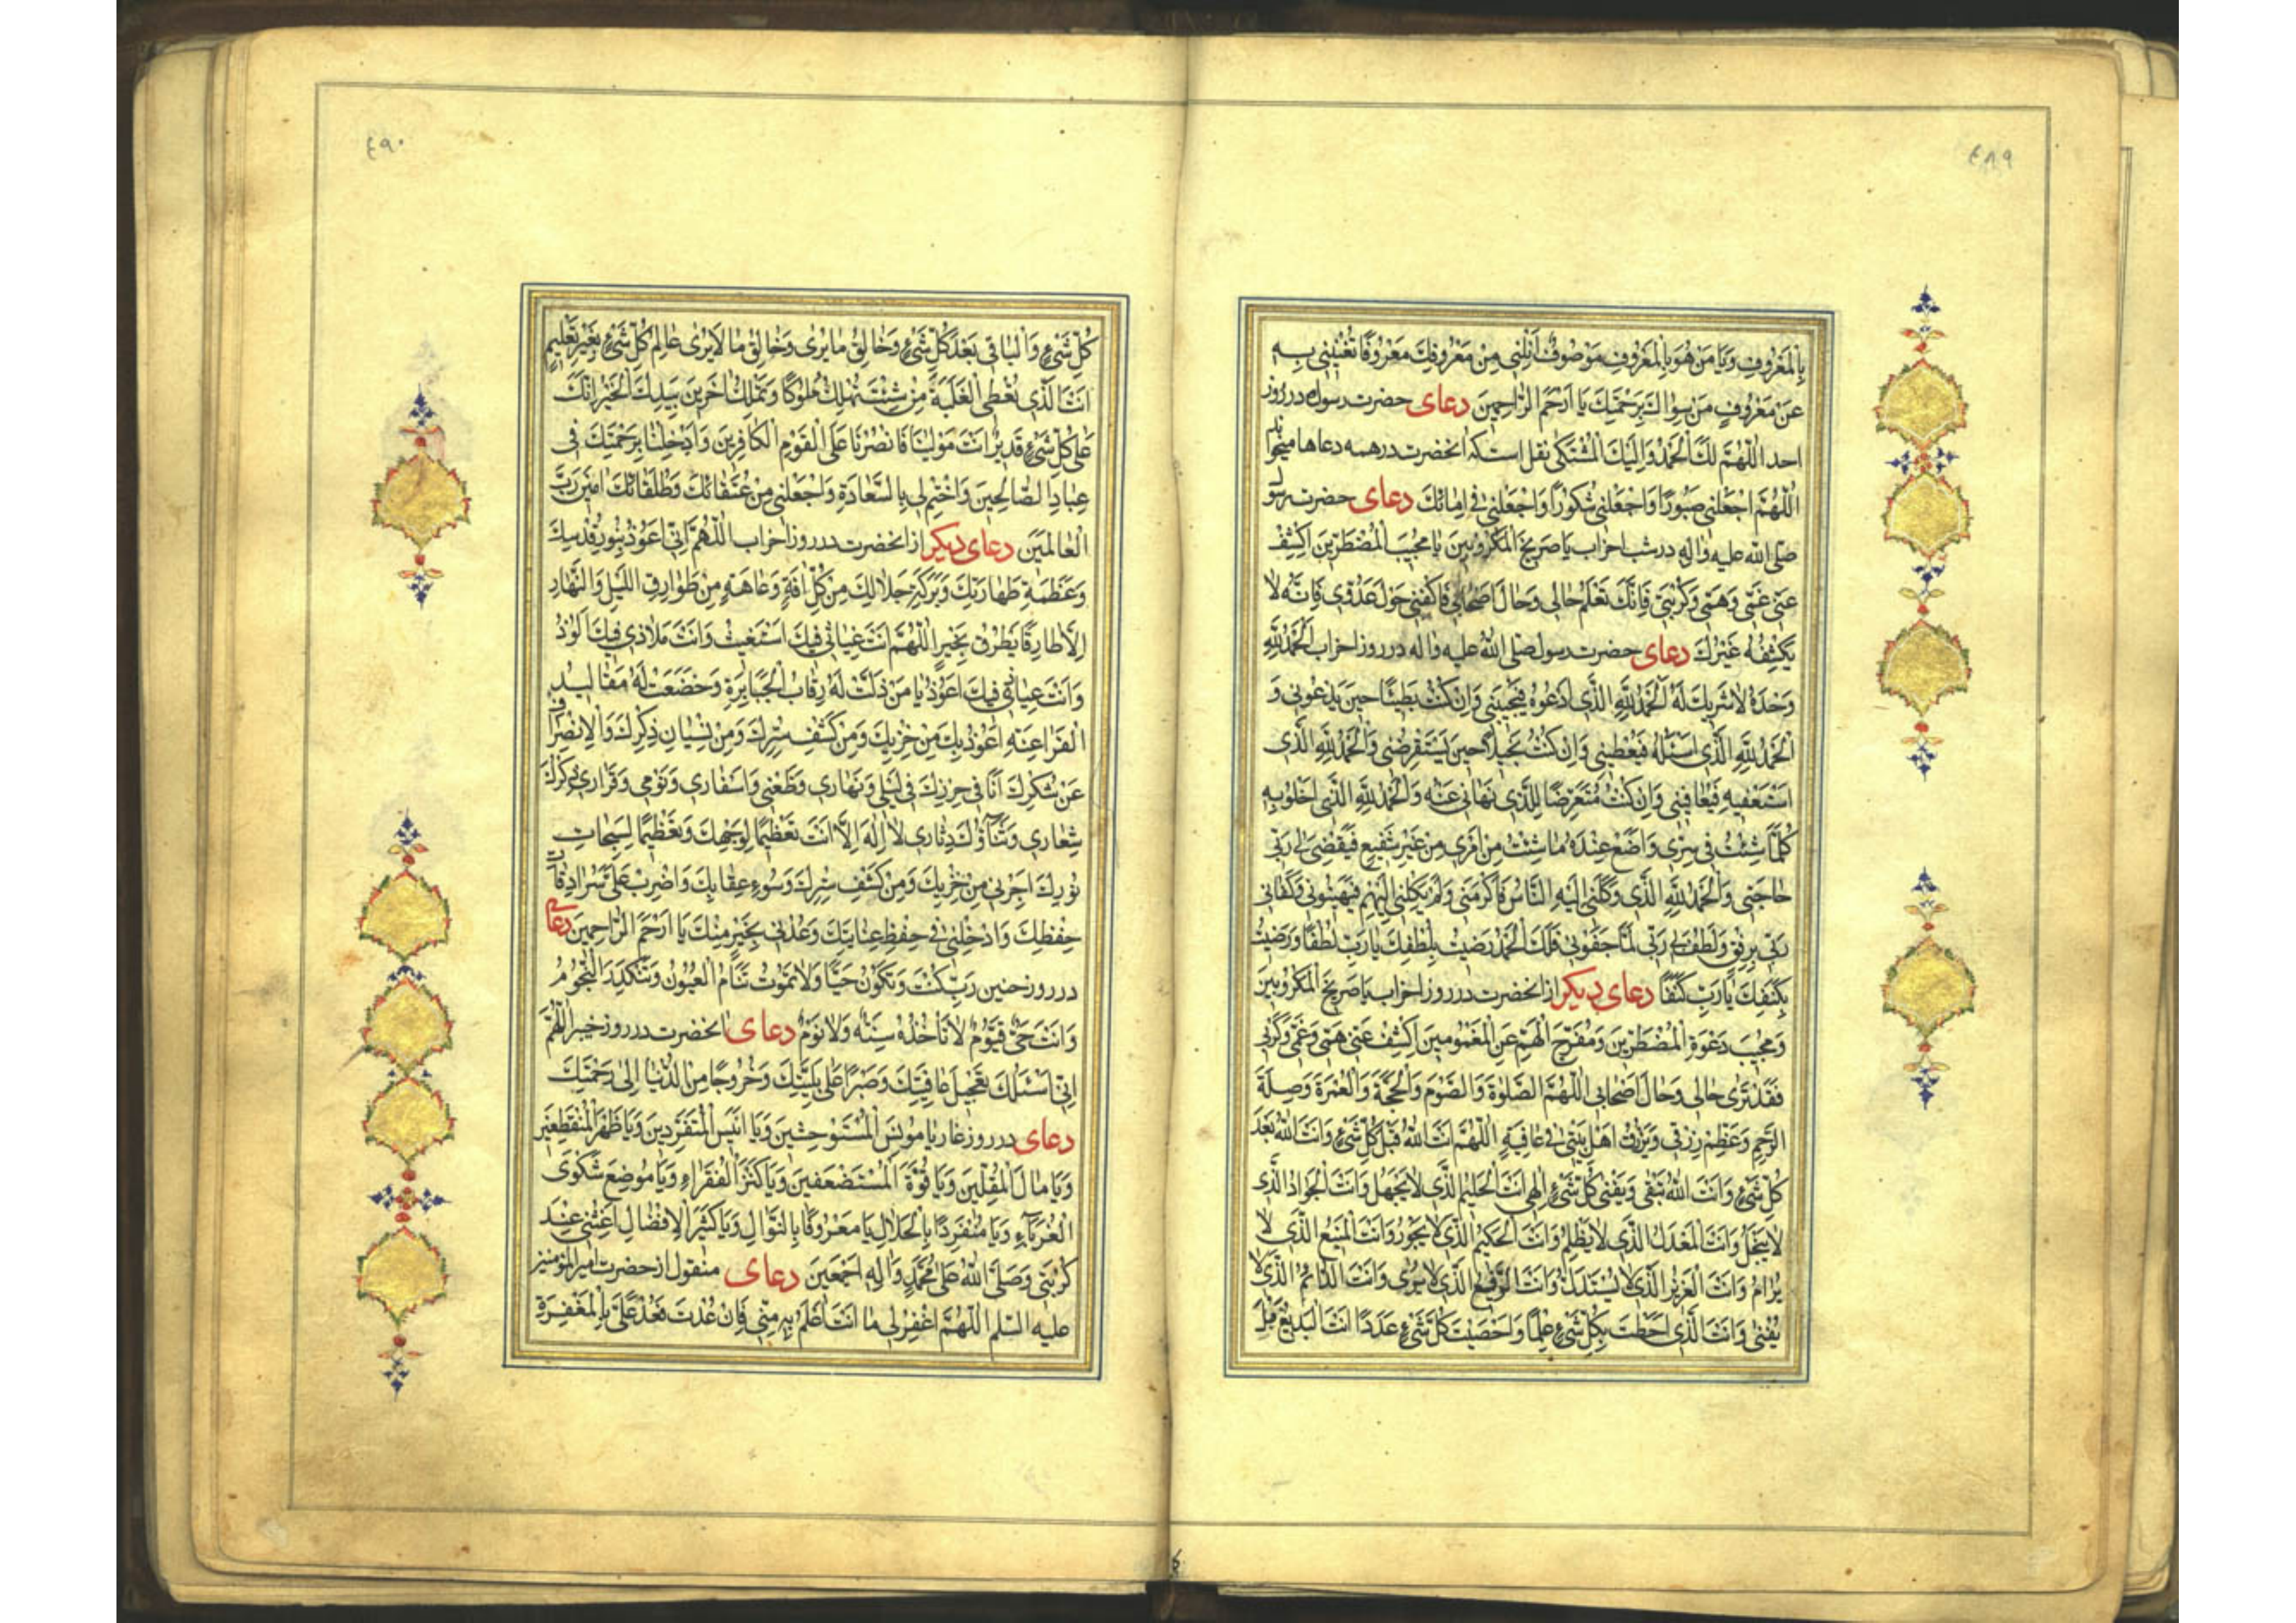 ٤٨٩
بِالْمَعْرُوفِ وَيَا مَنْ هُوَ بِالْمَعْرُوفِ مَوْصُوفٌ اَنِلْنِی مِنْ مَعْرُوفِكَ مَعْرُوفًا تُغْنِینِی بِهِ
عَنْ مَعْرُوفِ مَنْ سِوَاكَ بِرَحْمَتِكَ یَا اَرْحَمَ الرَّاحِمِینَ دعای حضرت رسول در روز
احد اَللّٰهُمَّ لَكَ الْحَمْدُ وَاِلَیْكَ الْمُشْتَكٰی نقل است که انحضرت در همه دعاها میخواند
اَللّٰهُمَّ اجْعَلْنِی صَبُورًا وَاجْعَلْنِی شَكُورًا وَاجْعَلْنِی فِی اَمَانِكَ دعای حضرت رسول
صلی الله علیه واله در شب احزاب یَا صَرِیخَ الْمَكْرُوبِینَ یَا مُجِیبَ الْمُضْطَرِّینَ اكْشِفْ
عَنِّی غَمِّی وَهَمِّی وَكُرْبَتِی فَاِنَّكَ تَعْلَمُ حَالِی وَحَالَ اَصْحَابِی فَاكْفِنِی حَوْلَ عَدُوِّی فَاِنَّهُ لَا
یَكْشِفُهُ غَیْرُكَ دعای حضرت رسول صلی الله علیه واله در روز احزاب اَلْحَمْدُ لِلّٰهِ
وَحْدَهُ لَا شَرِیكَ لَهُ اَلْحَمْدُ لِلّٰهِ الَّذِی اَدْعُوهُ فَیُجِیبُنِی وَاِنْ كُنْتُ بَطِیئًا حِینَ یَدْعُونِی وَ
الْحَمْدُ لِلّٰهِ الَّذِی اَسْئَلُهُ فَیُعْطِینِی وَاِنْ كُنْتُ بَخِیلًا حِینَ یَسْتَقْرِضُنِی وَالْحَمْدُ لِلّٰهِ الَّذِی
اَسْتَعْفِیهِ فَیُعَافِینِی وَاِنْ كُنْتُ مُتَعَرِّضًا لِلَّذِی نَهَانِی عَنْهُ وَالْحَمْدُ لِلّٰهِ الَّذِی اَخْلُو بِهِ
كُلَّمَا شِئْتُ فِی سِرِّی وَاَضَعُ عِنْدَهُ مَا شِئْتُ مِنْ اَمْرِی مِنْ غَیْرِ شَفِیعٍ فَیَقْضِی لِی رَبِّی
حَاجَتِی وَالْحَمْدُ لِلّٰهِ الَّذِی وَكَلَنِی اِلَیْهِ النَّاسُ فَاَكْرَمَنِی وَلَمْ یَكِلْنِی اِلَیْهِمْ فَیُهِینُونِی وَكَفَانِی
رَبِّی بِرِفْقٍ وَلَطُفَ بِی رَبِّی لَمَّا جَفَوْنِی فَلَكَ الْحَمْدُ رَضِیتُ بِلُطْفِكَ یَا رَبِّ لُطْفًا وَرَضِیتُ
بِكَنَفِكَ یَا رَبِّ كَنَفًا دعای دیکر از انحضرت در روز احزاب یَا صَرِیخَ الْمَكْرُوبِینَ
وَمُجِیبَ دَعْوَةِ الْمُضْطَرِّینَ وَمُفَرِّجَ الْهَمِّ عَنِ الْمَغْمُومِینَ اكْشِفْ عَنِّی هَمِّی وَغَمِّی وَكَرْبِی
فَقَدْ تَرٰی حَالِی وَحَالَ اَصْحَابِی اَللّٰهُمَّ الصَّلٰوةَ وَالصَّوْمَ وَالْحَجَّةَ وَالْعُمْرَةَ وَصِلَةَ
الرَّحِمِ وَعَظِّمْ رِزْقِی وَرِزْقَ اَهْلِ بَیْتِی فِی عَافِیَةٍ اَللّٰهُمَّ اَنْتَ اللّٰهُ قَبْلَ كُلِّ شَیْءٍ وَاَنْتَ اللّٰهُ بَعْدَ
كُلِّ شَیْءٍ وَاَنْتَ اللّٰهُ تَبْقٰی وَیَفْنٰی كُلُّ شَیْءٍ اِلٰهِی اَنْتَ الْحَلِیمُ الَّذِی لَا یَجْهَلُ وَاَنْتَ الْجَوَادُ الَّذِی
لَا یَبْخَلُ وَاَنْتَ الْعَدْلُ الَّذِی لَا یَظْلِمُ وَاَنْتَ الْحَكِیمُ الَّذِی لَا یَجُورُ وَاَنْتَ الْمَنِیعُ الَّذِی لَا
یُرَامُ وَاَنْتَ الْعَزِیزُ الَّذِی لَا یُسْتَذَلُّ وَاَنْتَ الرَّفِیعُ الَّذِی لَا یُرٰی وَاَنْتَ الدَّائِمُ الَّذِی لَا
یَفْنٰی وَاَنْتَ الَّذِی اَحَطْتَ بِكُلِّ شَیْءٍ عِلْمًا وَاَحْصَیْتَ كُلَّ شَیْءٍ عَدَدًا اَنْتَ الْبَدِیعُ قَبْلَ
٤٩٠
كُلِّ شَیْءٍ وَالْبَاقِی بَعْدَ كُلِّ شَیْءٍ وَخَالِقُ مَا یُرٰی وَخَالِقُ مَا لَا یُرٰی عَالِمُ كُلِّ شَیْءٍ بِغَیْرِ تَعْلِیمٍ
اَنْتَ الَّذِی تُعْطِی الْغَلَبَةَ مَنْ شِئْتَ تُهْلِكُ مُلُوكًا وَتُمَلِّكُ اٰخَرِینَ بِیَدِكَ الْخَیْرُ اِنَّكَ
عَلٰی كُلِّ شَیْءٍ قَدِیرٌ اَنْتَ مَوْلٰینَا فَانْصُرْنَا عَلَی الْقَوْمِ الْكَافِرِینَ وَاَدْخِلْنَا بِرَحْمَتِكَ فِی
عِبَادِ الصَّالِحِینَ وَاخْتِمْ لِی بِالسَّعَادَةِ وَاجْعَلْنِی مِنْ عُتَقَائِكَ وَطُلَقَائِكَ اٰمِینَ رَبَّ
الْعَالَمِینَ دعای دیکر از انحضرت در روز احزاب اَللّٰهُمَّ اِنِّی اَعُوذُ بِنُورِ قُدْسِكَ
وَعَظَمَةِ طَهَارَتِكَ وَبَرَكَةِ جَلَالِكَ مِنْ كُلِّ اٰفَةٍ وَعَاهَةٍ مِنْ طَوَارِقِ اللَّیْلِ وَالنَّهَارِ
اِلَّا طَارِقًا یَطْرُقُ بِخَیْرٍ اَللّٰهُمَّ اَنْتَ غِیَاثِی فَبِكَ اَسْتَغِیثُ وَاَنْتَ مَلَاذِی فَبِكَ اَلُوذُ
وَاَنْتَ عِیَاذِی فَبِكَ اَعُوذُ یَا مَنْ ذَلَّتْ لَهُ رِقَابُ الْجَبَابِرَةِ وَخَضَعَتْ لَهُ مَقَالِیدُ
الْفَرَاعِنَةِ اَعُوذُ بِكَ مِنْ خِزْیِكَ وَمِنْ كَشْفِ سِتْرِكَ وَمِنْ نِسْیَانِ ذِكْرِكَ وَالْاِنْصِرَافِ
عَنْ شُكْرِكَ اَنَا فِی حِرْزِكَ فِی لَیْلِی وَنَهَارِی وَظَعْنِی وَاَسْفَارِی وَنَوْمِی وَقَرَارِی ذِكْرُكَ
شِعَارِی وَثَنَاؤُكَ دِثَارِی لَا اِلٰهَ اِلَّا اَنْتَ تَعْظِیمًا لِوَجْهِكَ وَتَعْظِیمًا لِسُبُحَاتِ
نُورِكَ اَجِرْنِی مِنْ خِزْیِكَ وَمِنْ كَشْفِ سِتْرِكَ وَسُوءِ عِقَابِكَ وَاضْرِبْ عَلَیَّ سُرَادِقَاتِ
حِفْظِكَ وَاَدْخِلْنِی فِی حِفْظِ عِنَایَتِكَ وَعُدْنِی بِخَیْرٍ مِنْكَ یَا اَرْحَمَ الرَّاحِمِینَ دعای
در روز حنین رَبِّ كُنْتَ وَتَكُونُ حَیًّا وَلَا تَمُوتُ تَنَامُ الْعُیُونُ وَتَنْكَدِرُ النُّجُومُ
وَاَنْتَ حَیٌّ قَیُّومٌ لَا تَاْخُذُهُ سِنَةٌ وَلَا نَوْمٌ دعای انحضرت در روز خیبر اَللّٰهُمَّ
اِنِّی اَسْئَلُكَ تَعْجِیلَ عَافِیَتِكَ وَصَبْرًا عَلٰی بَلِیَّتِكَ وَخُرُوجًا مِنَ الدُّنْیَا اِلٰی رَحْمَتِكَ
دعای در روز غار یَا مُونِسَ الْمُسْتَوْحِشِینَ وَیَا اَنِیسَ الْمُتَفَرِّدِینَ وَیَا ظَهْرَ الْمُنْقَطِعِینَ
وَیَا مَالَ الْمُقِلِّینَ وَیَا قُوَّةَ الْمُسْتَضْعَفِینَ وَیَا كَنْزَ الْفُقَرَاءِ وَیَا مَوْضِعَ شَكْوَی
الْغُرَبَاءِ وَیَا مُنْفَرِدًا بِالْجَلَالِ یَا مَعْرُوفًا بِالنَّوَالِ وَیَا كَثِیرَ الْاِفْضَالِ اَغِثْنِی عِنْدَ
كُرْبَتِی وَصَلَّی اللّٰهُ عَلٰی مُحَمَّدٍ وَاٰلِهِ اَجْمَعِینَ دعای منقول از حضرت امیر المؤمنین
علیه السلم اَللّٰهُمَّ اغْفِرْ لِی مَا اَنْتَ اَعْلَمُ بِهِ مِنِّی فَاِنْ عُدْتُ فَعُدْ عَلَیَّ بِالْمَغْفِرَةِ